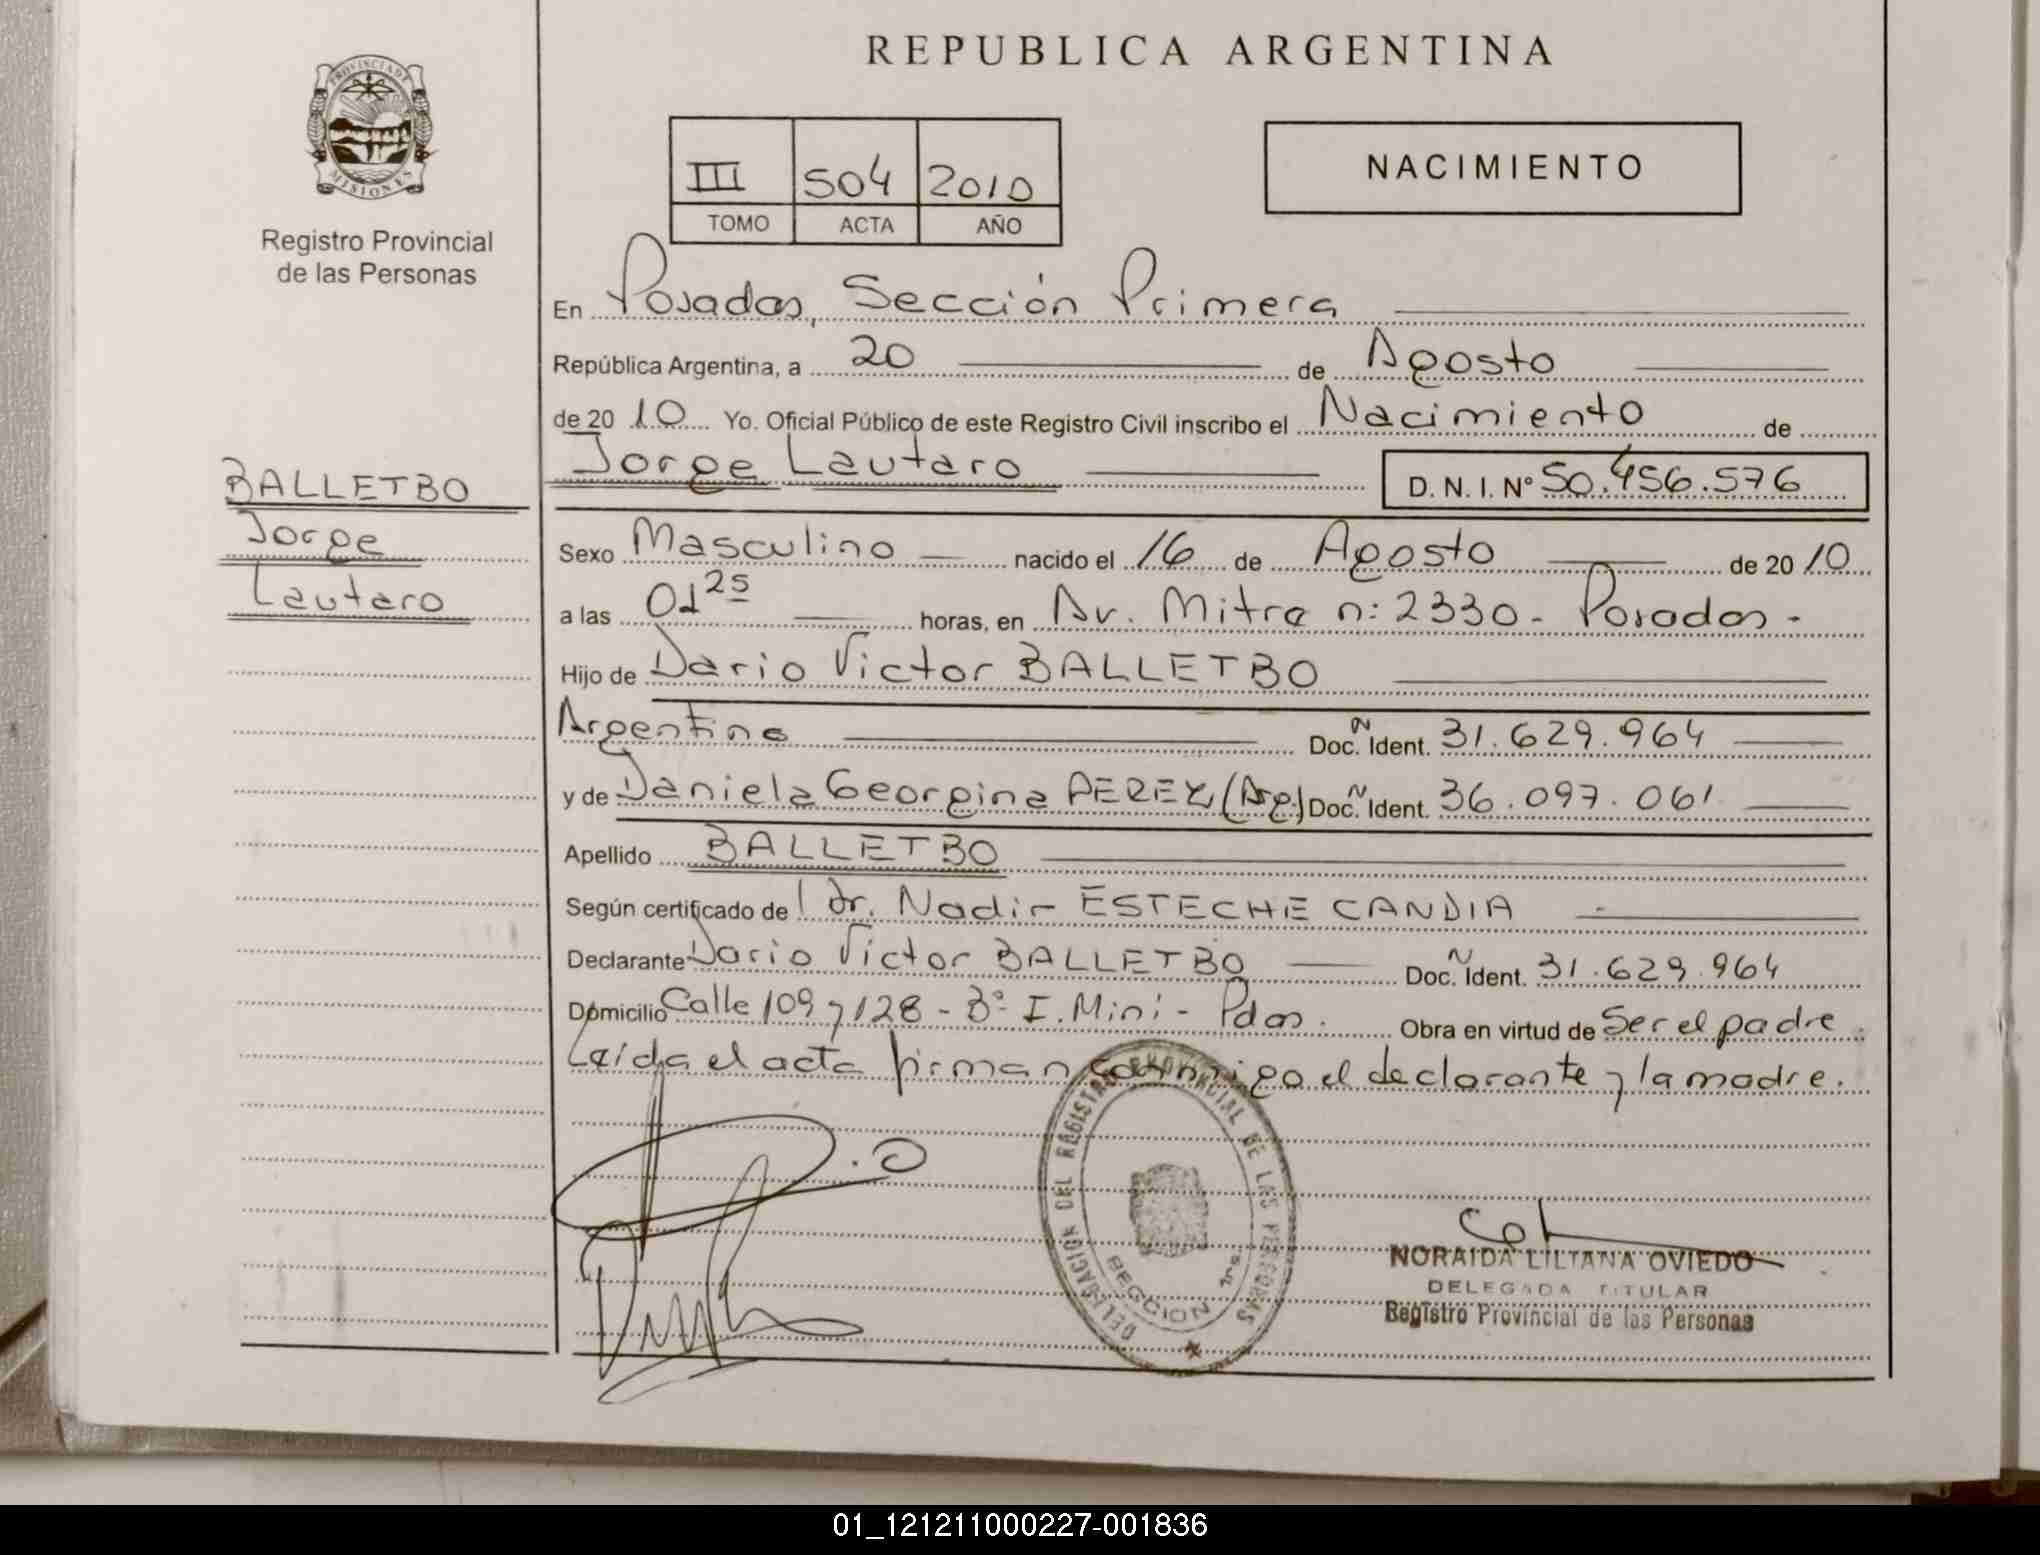 REPUBLICA ARGENTINA
PROVINCIA DE MISIONES
Registro Provincial
de las Personas
III 504 2010
TOMO ACTA AÑO
NACIMIENTO
BALLETBO
Jorge
Lautaro
En Posadas, Sección Primera
República Argentina, a 20 de Agosto
de 2010 Yo. Oficial Público de este Registro Civil inscribo el Nacimiento de
Jorge Lautaro D. N. I. Nº 50.456.576
Sexo Masculino nacido el 16 de Agosto de 2010
a las 01 25 horas, en Av. Mitre n: 2330 - Posadas -
Hijo de Dario Victor BALLETBO
Argentino Doc. Ident. 31.629.964
y de Daniela Georgina PEREZ (Arg) Doc. Ident. 36.097.061
Apellido BALLETBO
Según certificado de Dr. Nadir ESTECHE CANDIA
Declarante Dario Victor BALLETBO Doc. Ident. 31.629.964
Domicilio Calle 109 y 128 - Bº I. Mini - Pdas. Obra en virtud de Ser el padre.
Leída el acta firman conmigo el declarante y la madre.
DELEGACION DEL REGISTRO PROVINCIAL DE LAS PERSONAS
SECCION 1ra
NORAIDA LILIANA OVIEDO
DELEGADA TITULAR
Registro Provincial de las Personas
01_121211000227-001836